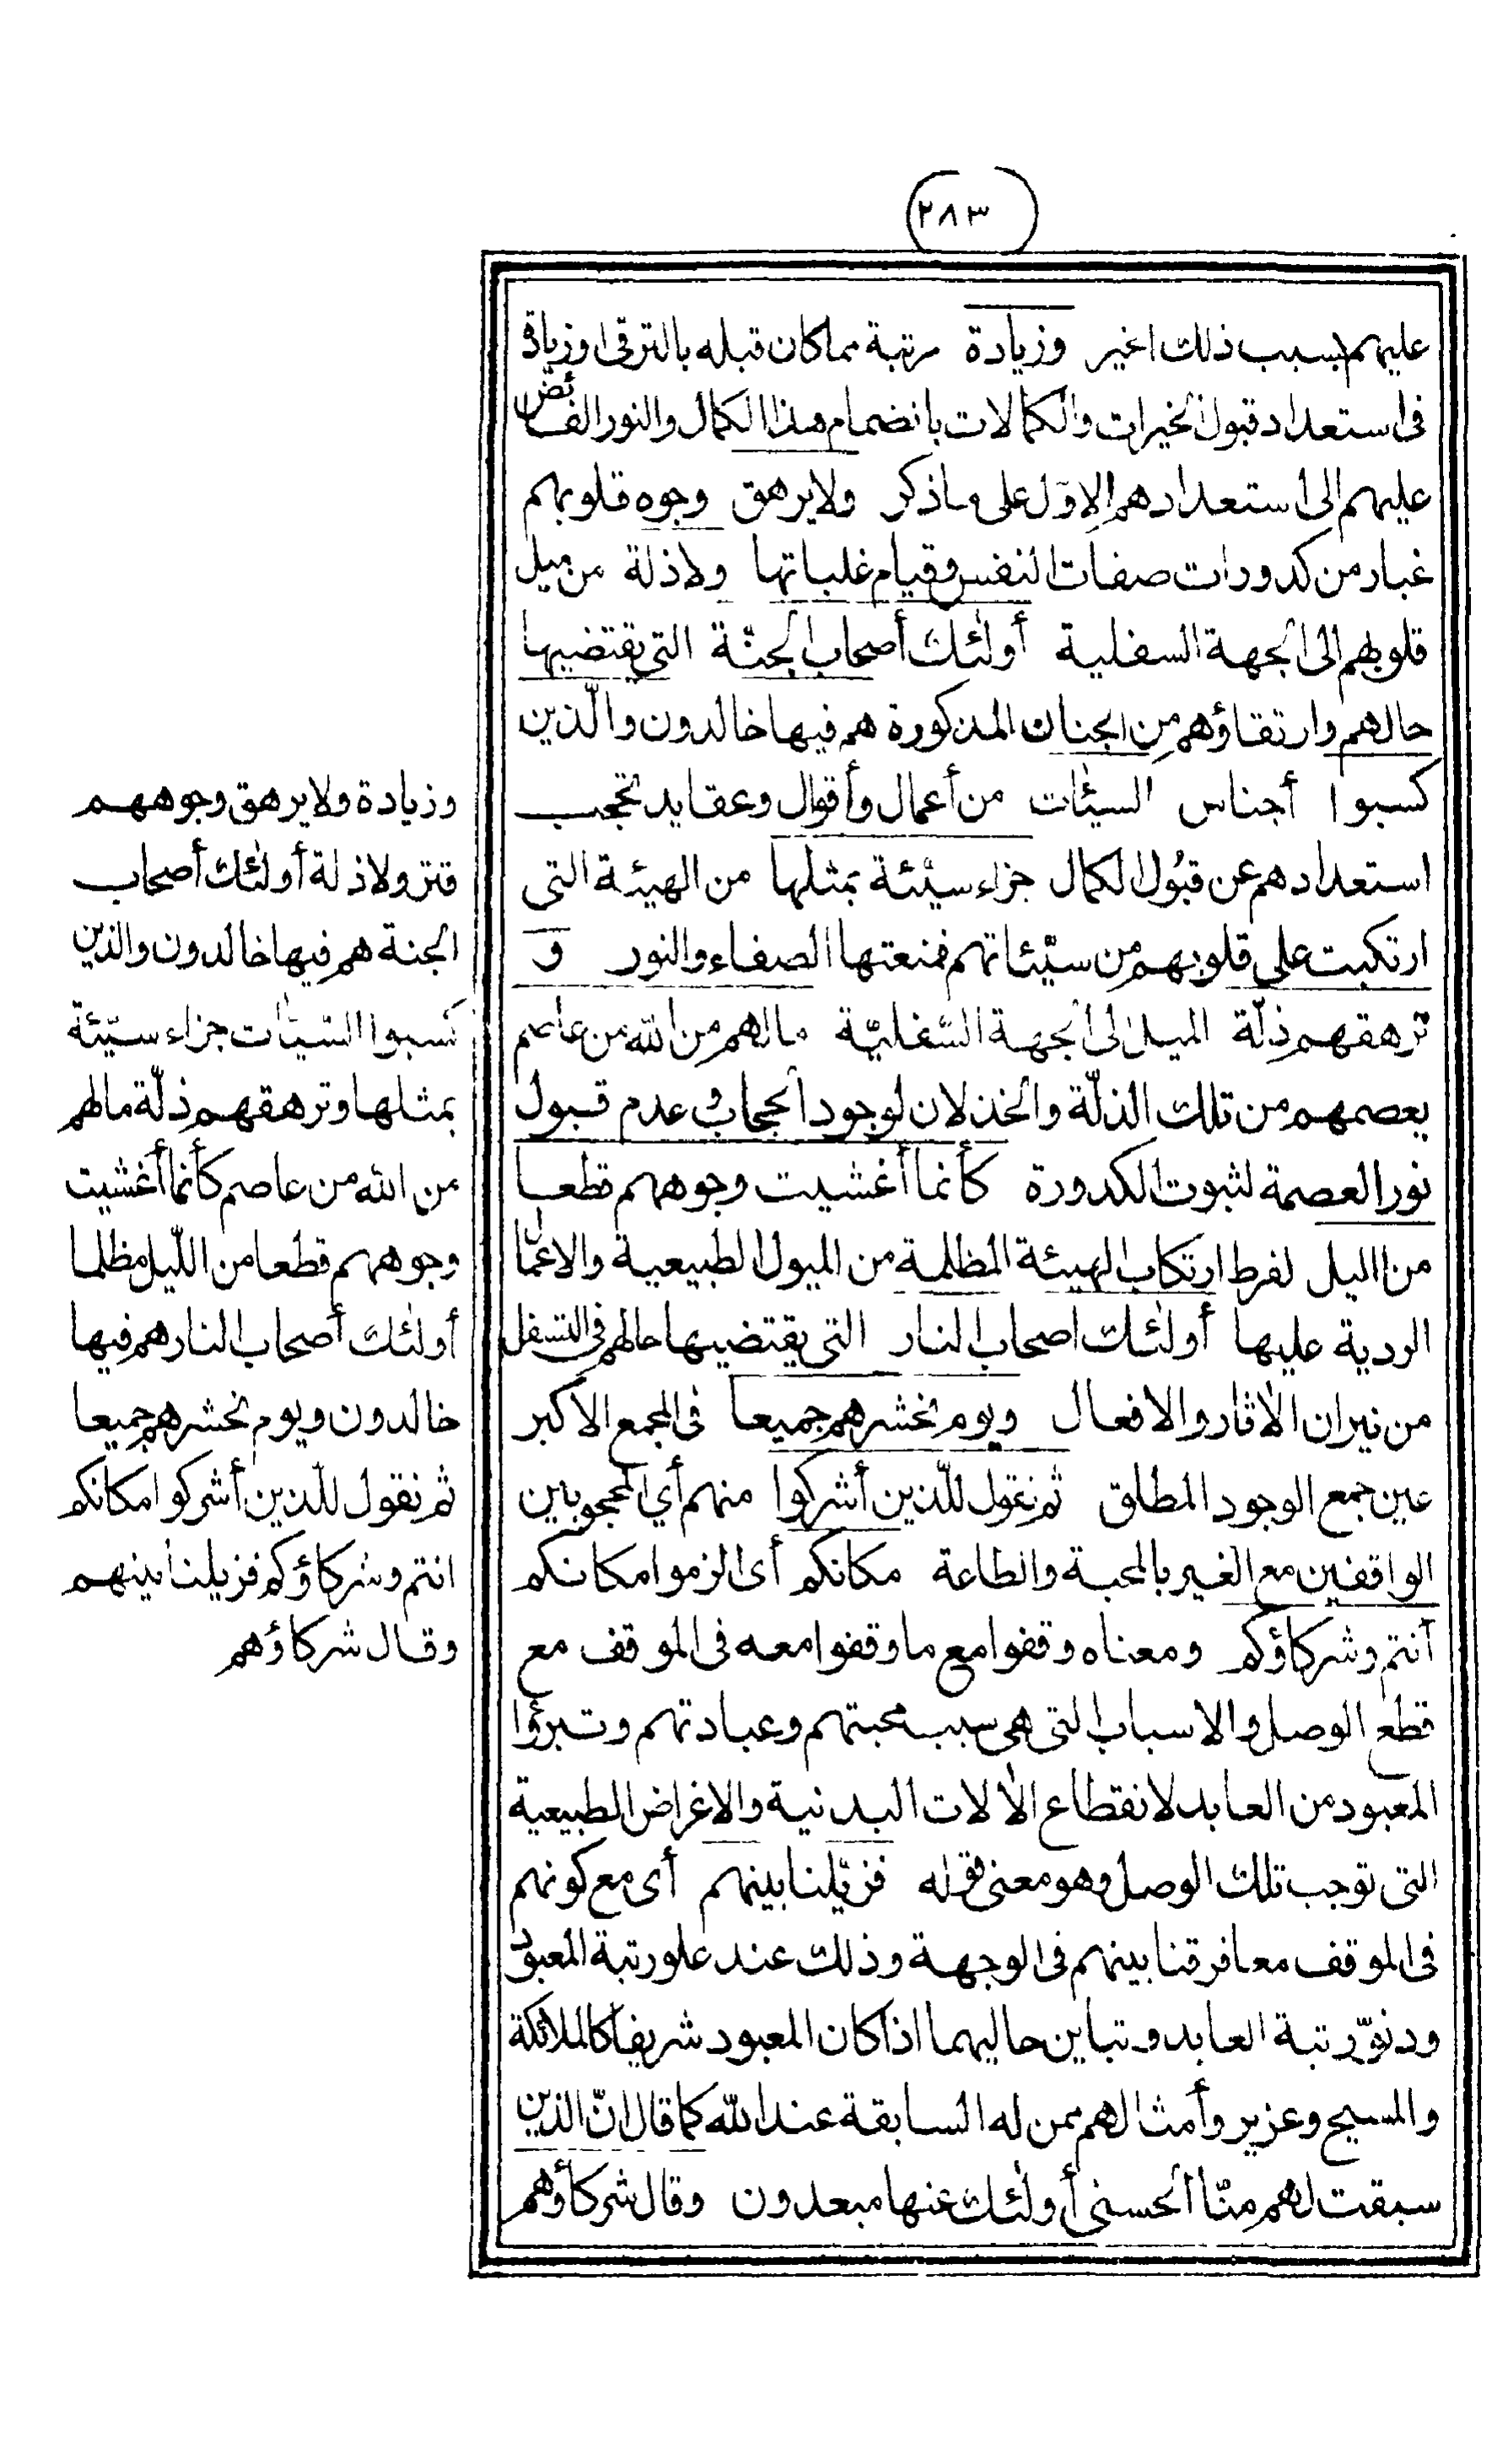 (٢٨٣)
عليهم بسبب ذلك الخير وزيادة مرتبة مما كان قبله بالترقى او زيادة
فى استعداد قبول الخيرات والكمالات بانضمام هذا الكمال والنور الفائض
عليهم الى استعدادهم الاوّل على ما ذكر ولا يرهق وجوه قلوبهم
غبار من كدورات صفات النفس وقيام غلباتها ولا ذلة من ميل
قلوبهم الى الجهة السفلية أولئك أصحاب الجنّة التى يقتضيها
حالهم وارتقاؤهم من الجنان المذكورة هم فيها خالدون والّذين
كسبوا أجناس السيئات من أعمال وأقوال وعقايد تحجب
استعدادهم عن قبُول الكمال جزاء سيّئة بمثلها من الهيئة التى
ارتكبت على قلوبهم من سيّئاتهم فمنعتها الصفاء والنور و
ترهقهم ذلّة الميل الى الجهة السّفليّة ما لهم من الله من عاصم
يعصمهم من تلك الذلّة والخذلان لوجود الحجاب وعدم قبول
نور العصمة لثبوت الكدورة كأنما أغشيت وجوههم قطعا
من اليل لفرط ارتكاب الهيئة المظلمة من الميول الطبيعية والاعمال
الردية عليها أولئك اصحاب النار التى يقتضيها حالهم فى التسفل
من نيران الآثار والافعال ويوم نحشرهم جميعا فى المجمع الاكبر
عين جمع الوجود المطلق ثم نقول للّذين أشركوا منهم أي المحجوبين
الواقفين مع الغير بالمحبة والطاعة مكانكم أى الزموا مكانكم
أنتم وشركاؤكم ومعناه وقفوا مع ما وقفوا معه فى الموقف مع
قطع الوصل والاسباب التى هى سبب محبتهم وعبادتهم وتبرؤا
المعبود من العابد لانقطاع الآلات البدنية والاغراض الطبيعية
التى توجب تلك الوصل وهو معنى قوله فزيّلنا بينهم أى مع كونهم
فى الموقف معا فرقنا بينهم فى الوجهة وذلك عند علو رتبة المعبود
ودنوّ رتبة العابد وتباين حاليهما اذا كان المعبود شريفا كالملائكة
والمسيح وعزير وأمثالهم ممن له السابقة عند الله كما قال انّ الذين
سبقت لهم منّا الحسنى أولئك عنها مبعدون وقال شركاؤهم
وزيادة ولا يرهق وجوههم
قتر ولا ذلة أولئك أصحاب
الجنة هم فيها خالدون والذين
كسبوا السّيّات جزاء سيّئة
بمثلها وترهقهم ذلّة ما لهم
من الله من عاصم كأنما أغشيت
وجوههم قطعا من اللّيل مظلما
أولئك أصحاب النار هم فيها
خالدون ويوم نحشرهم جميعا
ثم نقول للّذين أشركوا مكانكم
انتم وشركاؤكم فزيلنا بينهم
وقال شركاؤهم